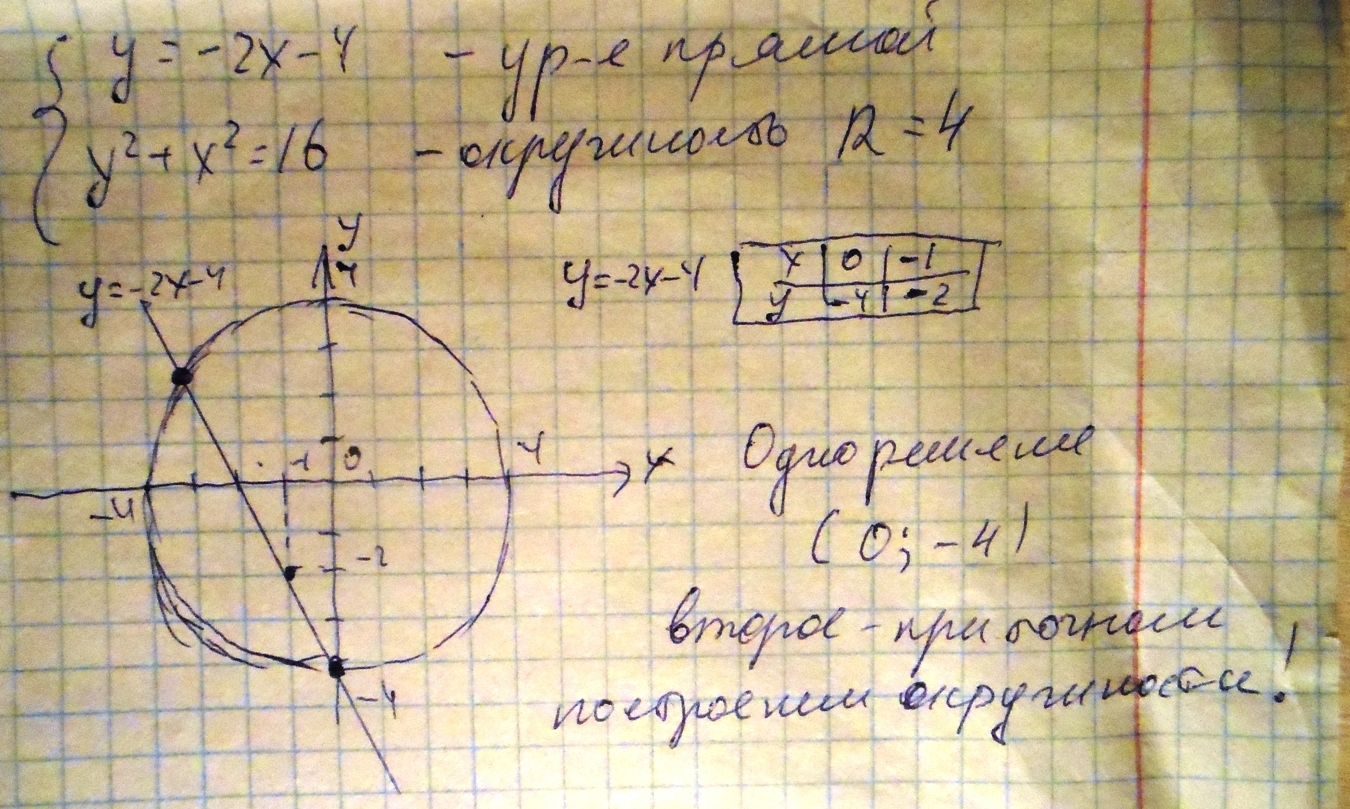 y = -2x-4 - ур-е прямой
y²+x²=16 - окружность R = 4
y
4
y=-2x-4
y=-2x-4
x 0 -1
y -4 -2
-1 0 4 x
-4
-2
-4
Одно решение
( 0; -4 )
второе - при точном
построении окружности!